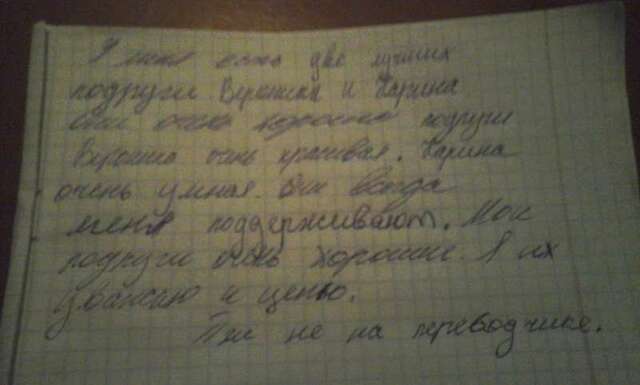 У меня есть две лучших
подруги Вушаня и Карина
Они очень хорошие подруги
Вушаня очень красивая. Карина
очень умная. Они всегда
меня поддерживают. Мои
подруги очень хорошие Я их
уважаю и ценю.
Только не на переводчике.